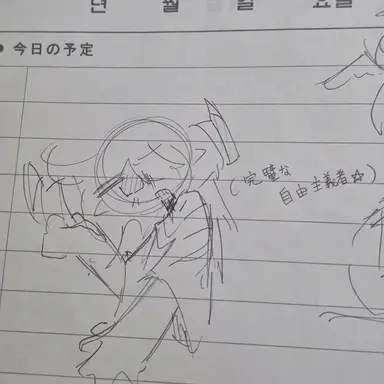 년 월 일 요일
● 今日の予定
(完璧な
自由主義者☆)